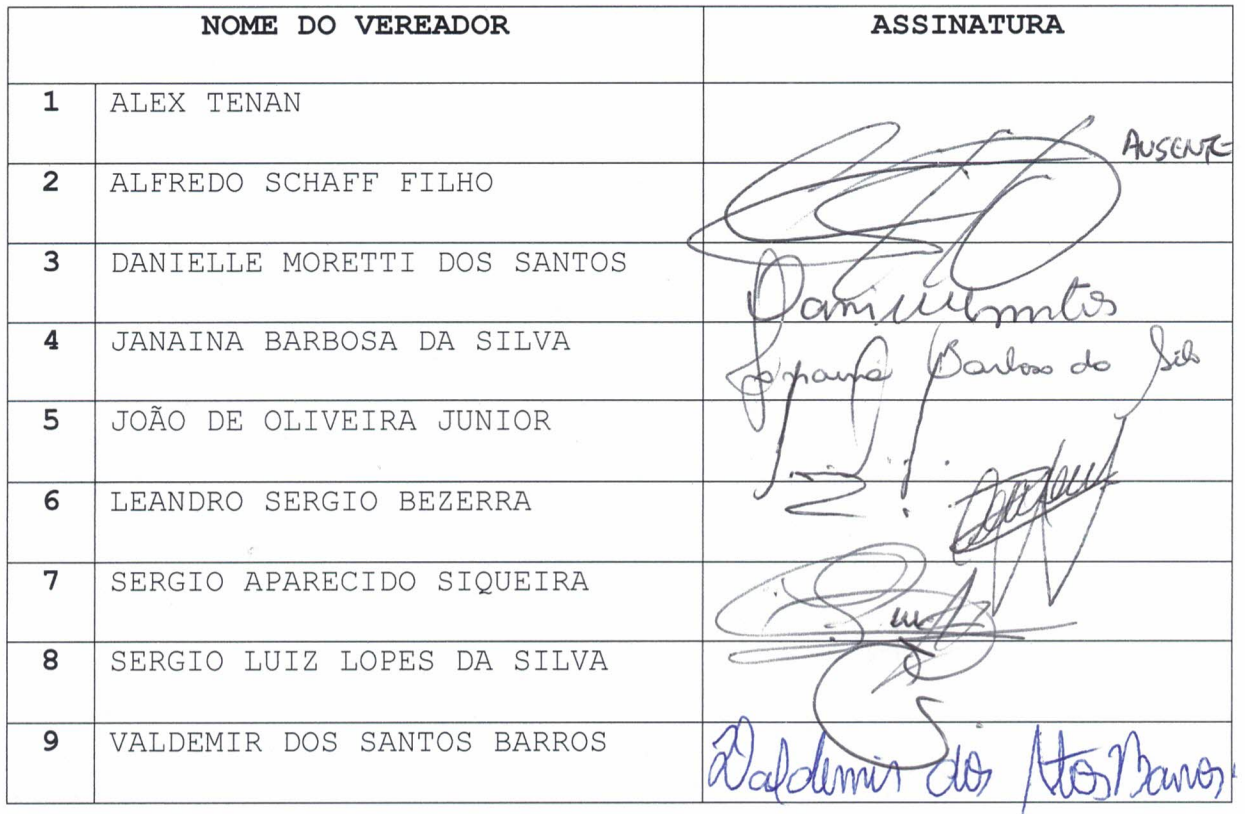 NOME DO VEREADOR ASSINATURA
1 ALEX TENAN AUSENTE
2 ALFREDO SCHAFF FILHO
3 DANIELLE MORETTI DOS SANTOS
4 JANAINA BARBOSA DA SILVA Barbosa da
5 JOÃO DE OLIVEIRA JUNIOR
6 LEANDRO SERGIO BEZERRA
7 SERGIO APARECIDO SIQUEIRA
8 SERGIO LUIZ LOPES DA SILVA
9 VALDEMIR DOS SANTOS BARROS Valdemir dos Stos Barros